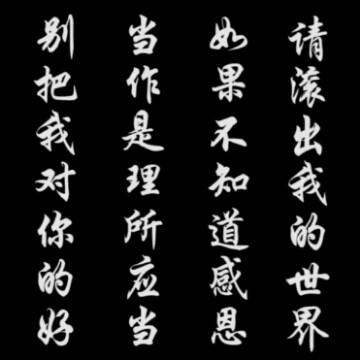 别把我对你的好
当作是理所应当
如果不知道感恩
请滚出我的世界